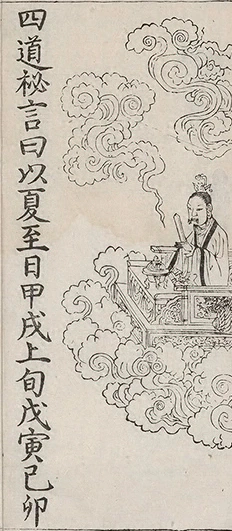 四道祕言曰以夏至日甲戌上旬戊寅己卯